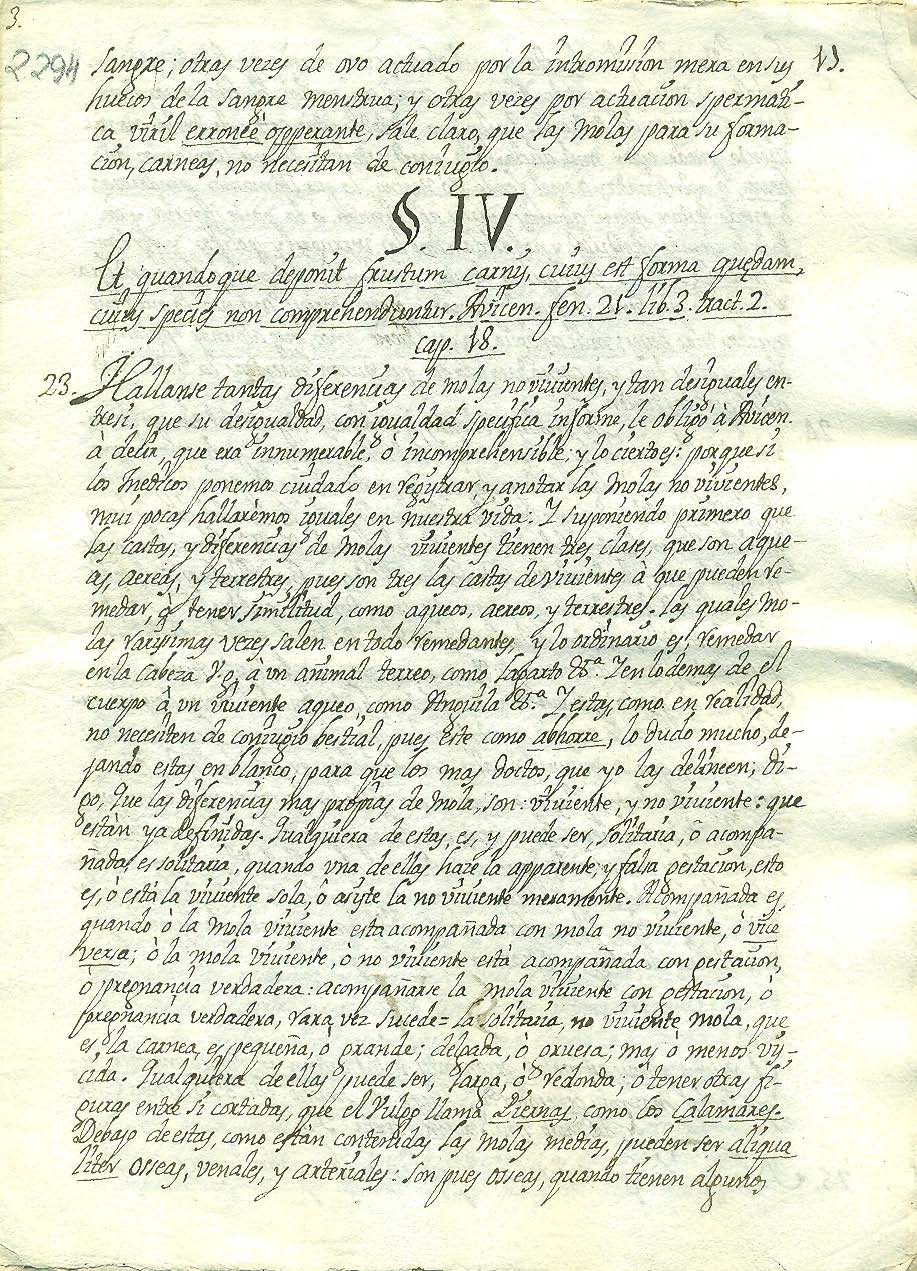 3.
2294
sangre; otras vezes de ovo actuado por la intromision mera en sus 11.
huecos de la sangre menstrua; y otras vezes por actuacion spermati-
ca viril erroneè opperante, sale claro, que las Molas para su forma-
cion, carneas, no necesitan de coniugio.
§. IV.
Et quandoque deponit frustum carnis, cuius est forma quędam,
cuius species non comprehenduntur. Avicen. fen. 21. lib. 3. tract. 2.
cap. 18.
23. Hallanse tantas diferencias de molas no vivientes, y tan desiguales en-
tresi, que su desigualdad, con igualdad specifica informe, le obligò à Avicen.
à decir, que era innumerable, ò incomprehensible; y lo cierto es: porque si
los Medicos ponemos cuidado en registrar, y anotar las Molas no vivientes,
mui pocas hallarèmos iguales en nuestra vida. Y suponiendo primero que
las castas, y diferencias de Molas vivientes tienen tres clases, que son aque-
as, aereas, y terrestres, pues son tres las castas de vivientes à que pueden re-
medar, ò tener similitud, como aqueos, aereos, y terrestres. Las quales Mo-
las rarisimas vezes salen en todo remedantes, y lo ordinario es, remedar
en la Cabeza v. g. à un añimal terreo, como Lagarto &ª. Y en lo demas de el
cuerpo à un viviente aqueo, como Anguila &ª. Y estas, como en realidad,
no necesiten de coniugio bestial, pues este como abhorre, lo dudo mucho, de-
jando estas en blanco, para que los mas doctos, que yo las delineen; di-
go, Que las diferencias mas proprias de Mola, son: viviente, y no viviente: que
estàn ya definidas. Qualquiera de estas, es, y puede ser, solitaria, ò acompa-
ñada, es solitaria, quando una de ellas haze la apparente, y falsa gestacion, esto
es, ò està la viviente sola, ò asiste la no viviente meramente. Acompañada es,
quando ò la mola viviente esta acompañada con mola no viviente, ò vice
versa; ò la mola viviente, ò no viviente està acompañada con gestacion,
ò pregnancia verdadera: acompañarse la mola viviente con gestacion, ò
pregnancia verdadera, rara vez sucede = La solitaria, no viviente Mola, que
es, la carnea, es pequeña, ò grande; delgada, ò gruesa; mas ò menos vis-
cida. Qualquiera de ellas puede ser, larga, ò redonda; ò tener otras fi-
guras entre si cortadas, que el Vulgo llama Piernas, como los Calamares.
Debajo de estas, como estàn contenidas las molas medias, pueden ser aliqua
liter osseas, venales, y arteriales: son pues osseas, quando tienen algunos